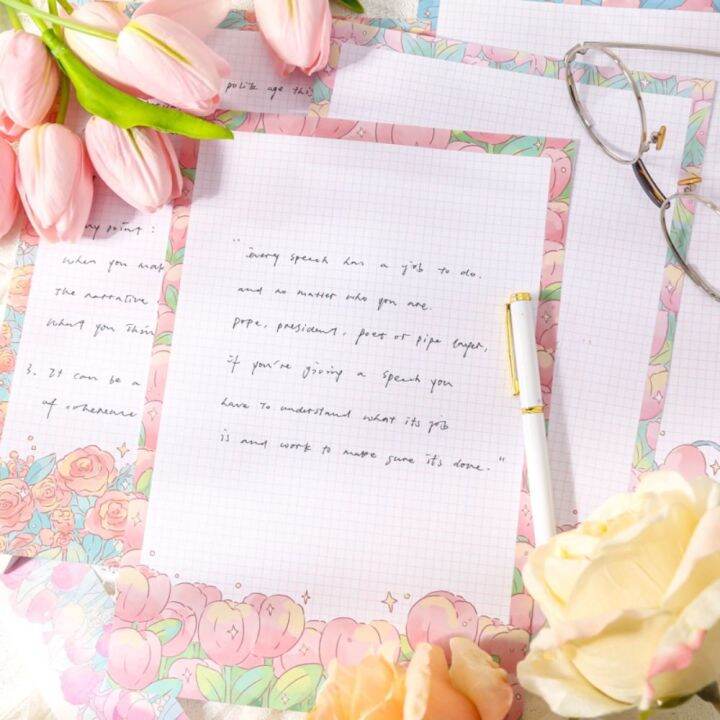 polite age this
my point :
when you mak
the narrative
what you thin
3. It can be a
of coherence
"every speech has a job to do.
and no matter who you are.
pope, president, poet or pipe layer,
if you're giving a speech you
have to understand what its job
is and work to make sure it's done."